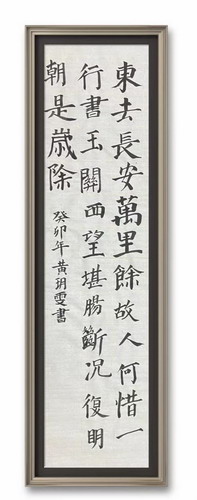 東去長安萬里餘故人何惜一
行書玉關西望堪腸斷况復明
朝是歲除
癸卯年黃玥雯書